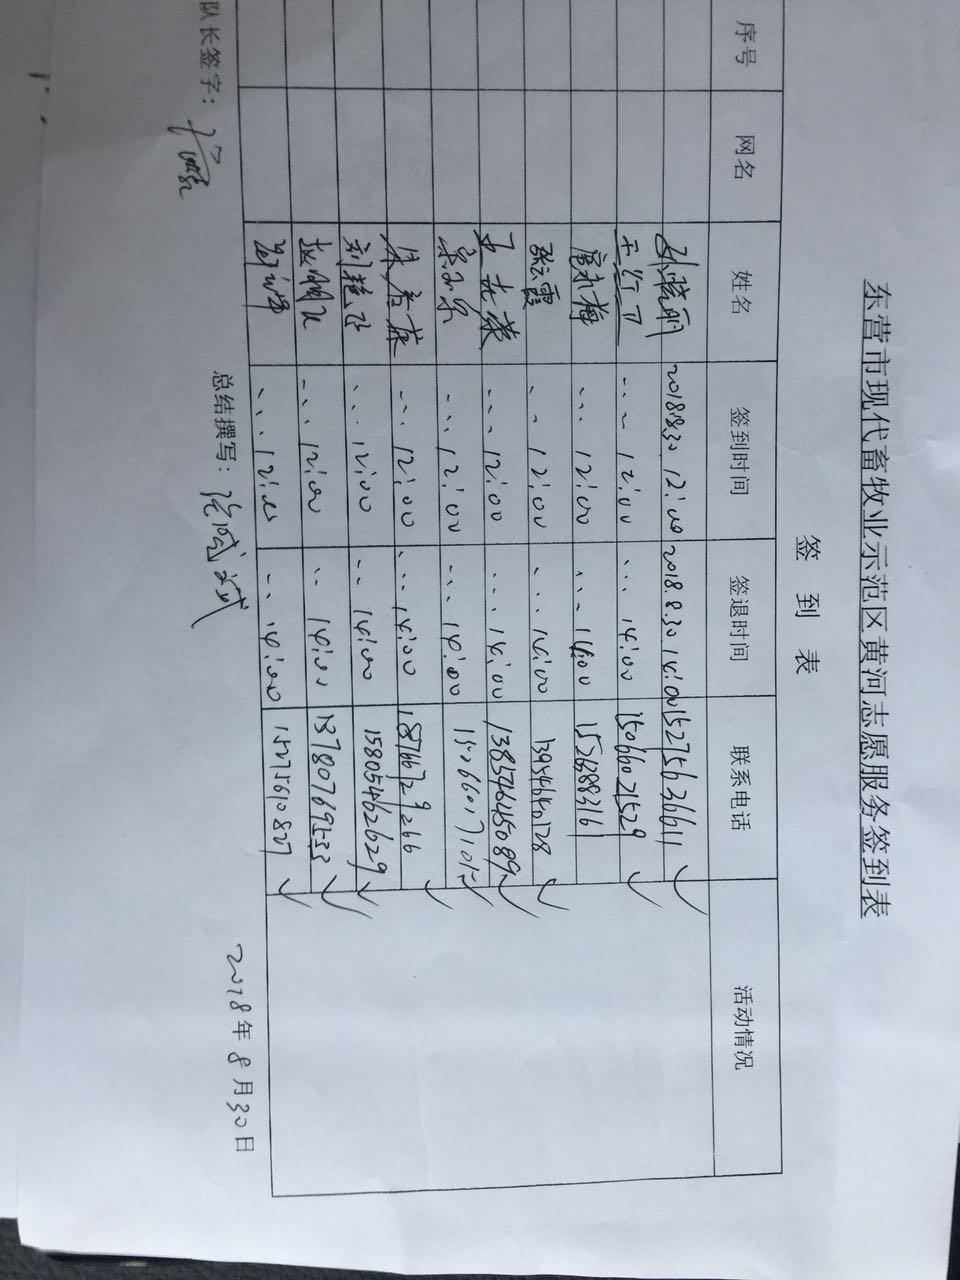 东营市现代畜牧业示范区黄河志愿服务签到表
签 到 表
序号 网名 姓名 签到时间 签退时间 联系电话 活动情况
孙晓丽 2018.8.30 12:00 2018.8.30 14:00 15275636611
12:00 14:00 15066021529
12:00 14:00 1526288316
张云霞 12:00 14:00 13954640178
王光荣 12:00 14:00 13854645089
12:00 14:00
朱春燕 12:00 14:00 18766729266
刘艳 12:00 14:00 15805462629
12:00 14:00 13780769533
12:00 14:00 15275610827
队长签字： 总结撰写： 2018年8月30日